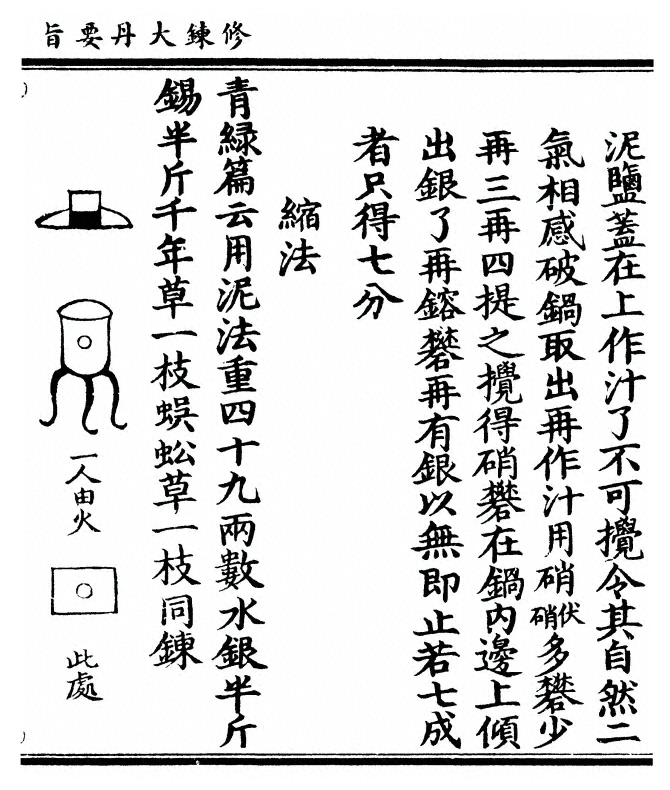 修鍊大丹要旨
泥鹽蓋在上作汁了不可攪令其自然二
氣相感破鍋取出再作汁用硝伏硝多礬少
再三再四提之攪得硝礬在鍋內邊上傾
出銀了再鎔礬再有銀以無即止若七成
者只得七分
縮法
青緑篇云用泥法重四十九兩數水銀半斤
錫半斤千年草一枝蜈蚣草一枝同鍊
一人由火
此處